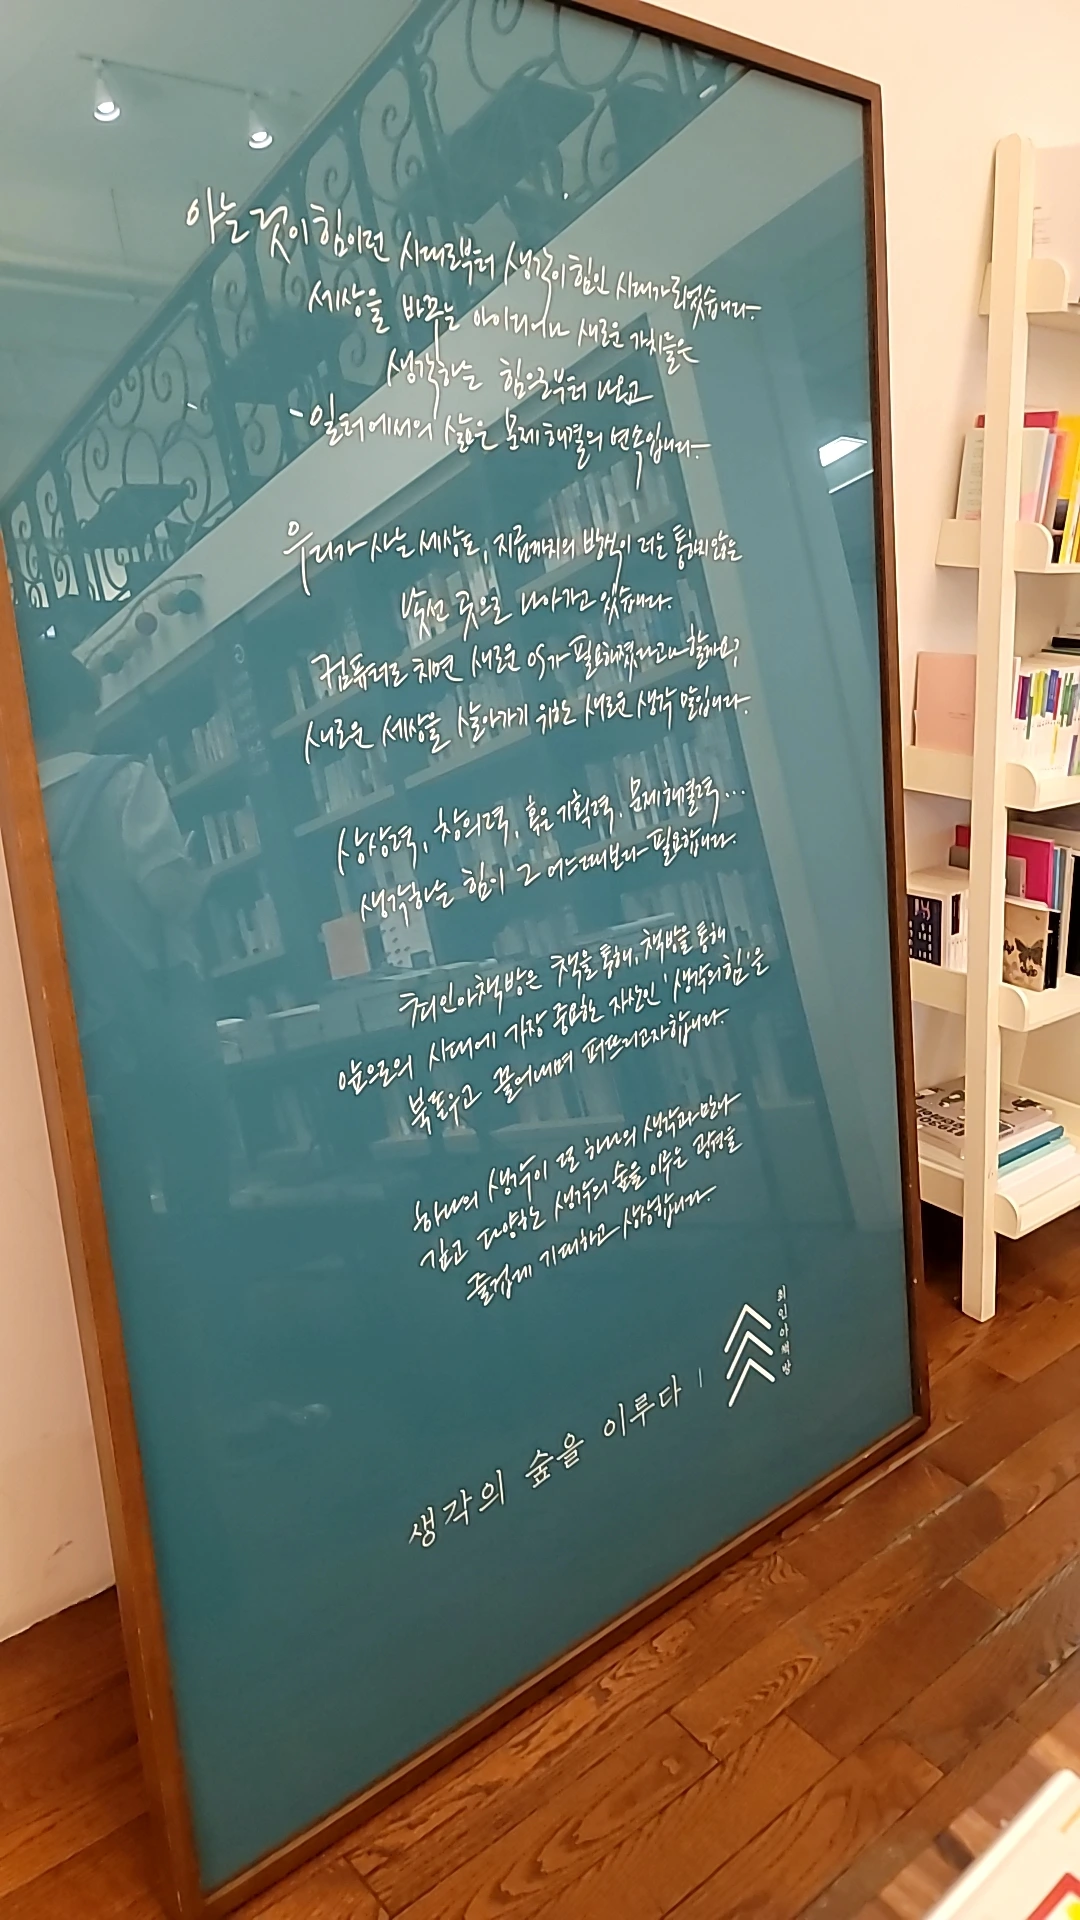 아는 것이 힘이던 시대로부터 생각이 힘인 시대가 되었습니다.
세상을 바꾸는 아이디어나 새로운 가치들은
생각하는 힘으로부터 나오고
일터에서의 삶은 문제 해결의 연속입니다.
우리가 사는 세상도, 지금까지의 방식이 더는 통하지 않는
낯선 곳으로 나아가고 있습니다.
컴퓨터로 치면 새로운 OS가 필요해졌다고나 할까요?
새로운 세상을 살아가기 위한 새로운 생각 말입니다.
상상력, 창의력, 혹은 기획력, 문제해결력...
생각하는 힘이 그 어느 때보다 필요합니다.
최인아책방은 책을 통해, 책방을 통해
앞으로의 시대에 가장 중요한 자산인 '생각의 힘'을
북돋우고 끌어내며 퍼뜨리고자 합니다.
하나의 생각이 또 하나의 생각과 만나
깊고 다양한 생각의 숲을 이루는 광경을
즐겁게 기대하고 상상합니다.
생각의 숲을 이루다 |
최인아책방